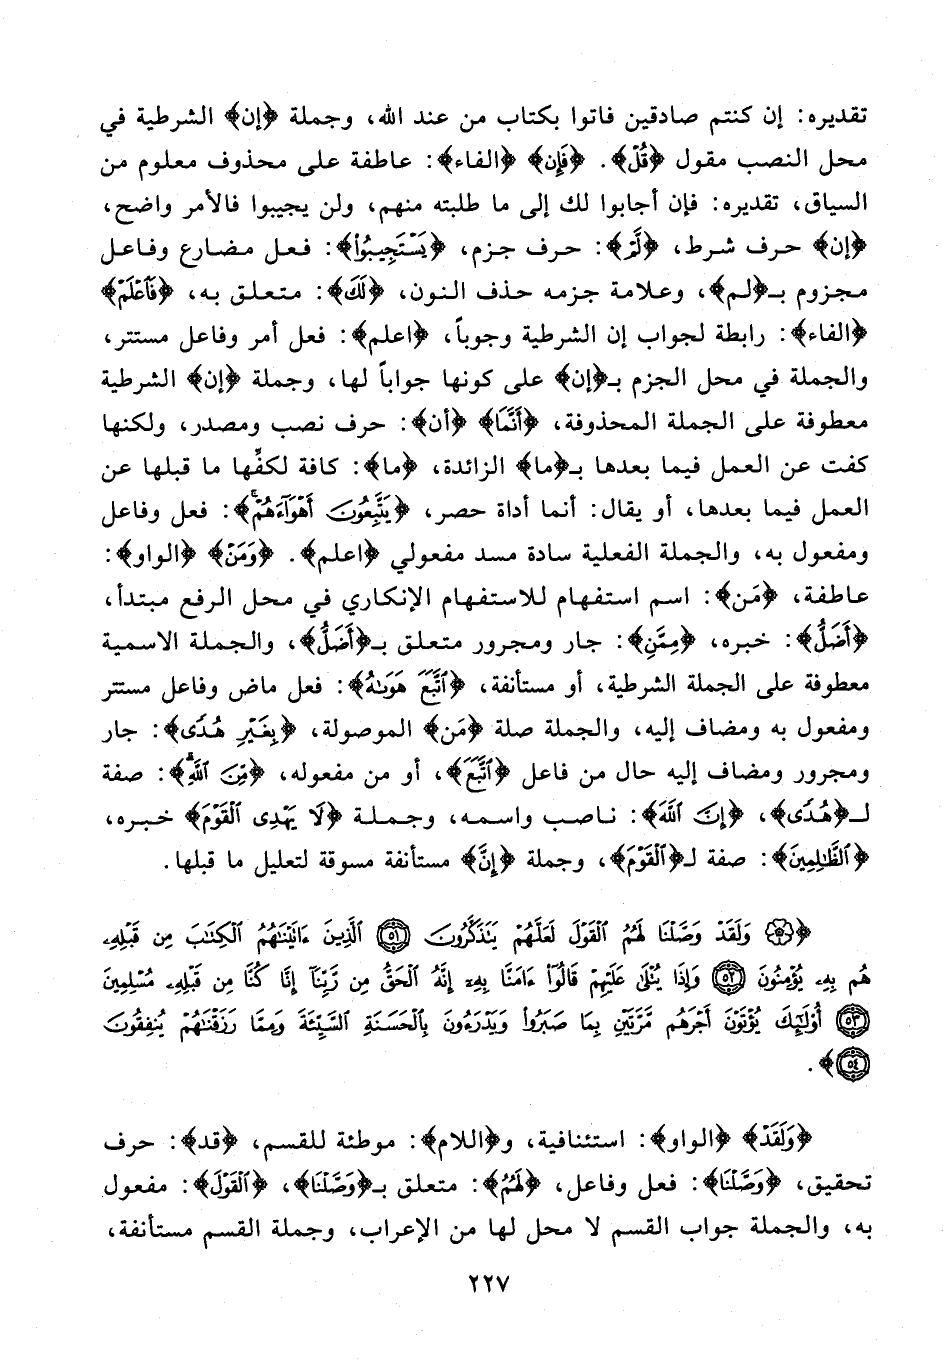 تقديره: إن كنتم صادقين فاتوا بكتاب من عند الله، وجملة ﴿إن﴾ الشرطية في
محل النصب مقول ﴿قُلْ﴾. ﴿فَإِن﴾ ﴿الفاء﴾: عاطفة على محذوف معلوم من
السياق، تقديره: فإن أجابوا لك إلى ما طلبته منهم، ولن يجيبوا فالأمر واضح،
﴿إن﴾ حرف شرط، ﴿لَّمْ﴾: حرف جزم، ﴿يَسْتَجِيبُوا۟﴾: فعل مضارع وفاعل
مجزوم بـ﴿لم﴾، وعلامة جزمه حذف النون، ﴿لَكَ﴾: متعلق به، ﴿فَٱعْلَمْ﴾
﴿الفاء﴾: رابطة لجواب إن الشرطية وجوباً، ﴿اعلم﴾: فعل أمر وفاعل مستتر،
والجملة في محل الجزم بـ﴿إن﴾ على كونها جواباً لها، وجملة ﴿إن﴾ الشرطية
معطوفة على الجملة المحذوفة، ﴿أَنَّمَا﴾ ﴿أن﴾: حرف نصب ومصدر، ولكنها
كفت عن العمل فيما بعدها بـ﴿ما﴾ الزائدة، ﴿ما﴾: كافة لكفِّها ما قبلها عن
العمل فيما بعدها، أو يقال: أنما أداة حصر، ﴿يَتَّبِعُونَ أَهْوَآءَهُمْ ۚ﴾: فعل وفاعل
ومفعول به، والجملة الفعلية سادة مسد مفعولي ﴿اعلم﴾. ﴿وَمَنْ﴾ ﴿الواو﴾:
عاطفة، ﴿مَن﴾: اسم استفهام للاستفهام الإنكاري في محل الرفع مبتدأ،
﴿أَضَلُّ﴾: خبره، ﴿مِمَّنِ﴾: جار ومجرور متعلق بـ﴿أَضَلُّ﴾، والجملة الاسمية
معطوفة على الجملة الشرطية، أو مستأنفة، ﴿ٱتَّبَعَ هَوَىٰهُ﴾: فعل ماض وفاعل مستتر
ومفعول به ومضاف إليه، والجملة صلة ﴿مَن﴾ الموصولة، ﴿بِغَيْرِ هُدًى﴾: جار
ومجرور ومضاف إليه حال من فاعل ﴿ٱتَّبَعَ﴾، أو من مفعوله، ﴿مِّنَ ٱللَّهِ ۚ﴾: صفة
لـ﴿هُدًى﴾، ﴿إِنَّ ٱللَّهَ﴾: ناصب واسمه، وجملة ﴿لَا يَهْدِى ٱلْقَوْمَ﴾ خبره،
﴿ٱلظَّٰلِمِينَ﴾: صفة لـ﴿ٱلْقَوْمَ﴾، وجملة ﴿إِنَّ﴾ مستأنفة مسوقة لتعليل ما قبلها.
﴿۞ وَلَقَدْ وَصَّلْنَا لَهُمُ ٱلْقَوْلَ لَعَلَّهُمْ يَتَذَكَّرُونَ ٥١ ٱلَّذِينَ ءَاتَيْنَٰهُمُ ٱلْكِتَٰبَ مِن قَبْلِهِۦ
هُم بِهِۦ يُؤْمِنُونَ ٥٢ وَإِذَا يُتْلَىٰ عَلَيْهِمْ قَالُوٓا۟ ءَامَنَّا بِهِۦٓ إِنَّهُ ٱلْحَقُّ مِن رَّبِّنَآ إِنَّا كُنَّا مِن قَبْلِهِۦ مُسْلِمِينَ
٥٣ أُو۟لَٰٓئِكَ يُؤْتَوْنَ أَجْرَهُم مَّرَّتَيْنِ بِمَا صَبَرُوا۟ وَيَدْرَءُونَ بِٱلْحَسَنَةِ ٱلسَّيِّئَةَ وَمِمَّا رَزَقْنَٰهُمْ يُنفِقُونَ
٥٤﴾.
﴿وَلَقَدْ﴾ ﴿الواو﴾: استئنافية، و﴿اللام﴾: موطئة للقسم، ﴿قد﴾: حرف
تحقيق، ﴿وَصَّلْنَا﴾: فعل وفاعل، ﴿لَهُمُ﴾: متعلق بـ﴿وَصَّلْنَا﴾، ﴿ٱلْقَوْلَ﴾: مفعول
به، والجملة جواب القسم لا محل لها من الإعراب، وجملة القسم مستأنفة،
٢٢٧